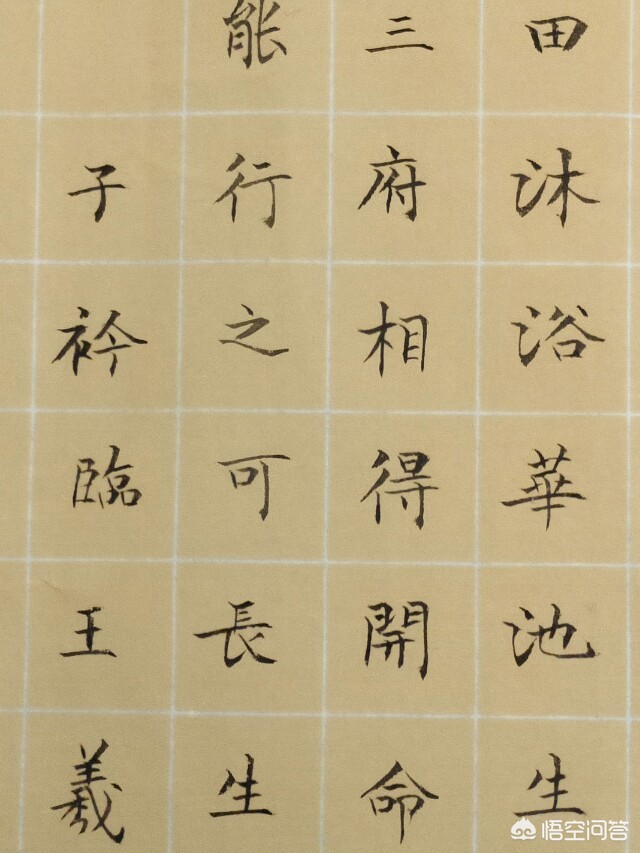 田沐浴華池生
三府相得開命
能行之可長生
子衿臨王羲
悟空问答